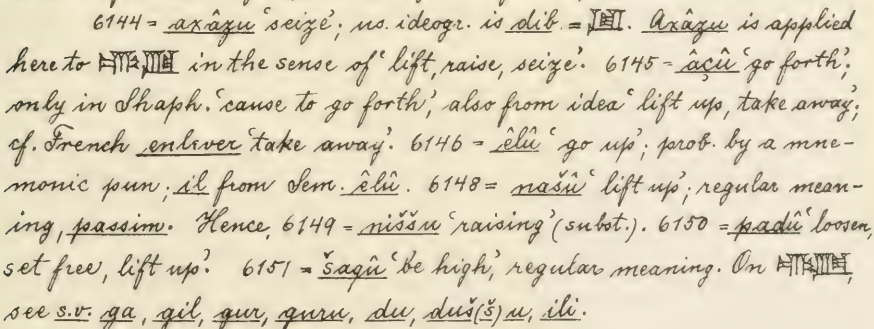 6144 = axâzu 'seize'; us. ideogr. is dib = . Axâzu is applied
here to in the sense of 'lift, raise, seize'. 6145 = âçû 'go forth';
only in Shaph. 'cause to go forth', also from idea 'lift up, take away';
cf. French enlever 'take away'. 6146 = êlû 'go up'; prob. by a mne-
monic pun; il from Sem. êlû. 6148 = našû 'lift up'; regular mean-
ing, passim. Hence, 6149 = niššu 'raising' (subst.). 6150 = padû 'loosen,
set free, lift up'. 6151 = šaqû 'be high', regular meaning. On ,
see s.v. ga, gil, gur, guru, du, duš(š)u, ili.